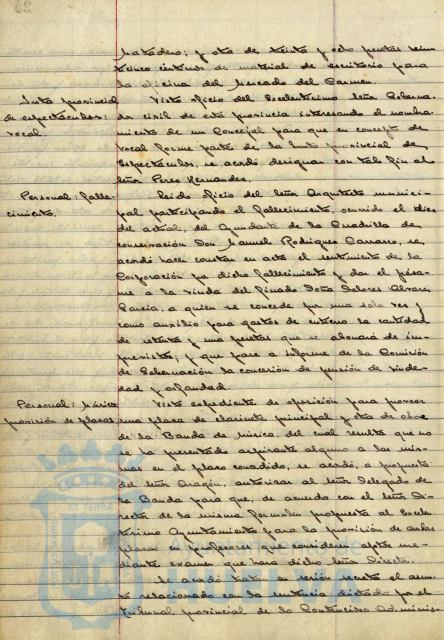 Matadero; y otra de treinta y ocho pesetas vein-
ticinco céntimos de material de escritorio para
la oficina del Mercado del Carmen.
Junta provincial
de espectáculos:
vocal.
Visto oficio del Excelentísimo Señor Goberna-
dor civil de esta provincia interesando el nombra-
miento de un Concejal para que en concepto de
vocal forme parte de la Junta provincial de
Espectáculos, se acordó designar con tal fin al
Señor Perez Hernandez.
Personal: falle-
cimiento.
Leido oficio del Señor Arquitecto munici-
pal participando el fallecimiento, ocurrido el diez
del actual, del Ayudante de la Cuadrilla de
conservación Don Manuel Rodriguez Carrasco, se
acordó hacer constar en acta el sentimiento de la
Corporación por dicho fallecimiento y dar el pésa-
me a la viuda del finado Doña Dolores Alvarez
Garcia, a quien se concede por una sola vez y
como auxilio para gastos de entierro la cantidad
de setenta y una pesetas que se abonará de im-
previstos, y que pase a informe de la Comisión
de Gobernación la concesión de pensión de viude-
dad y orfandad.
Personal: música
provisión de plazas.
Visto expediente de oposición para proveer
una plaza de clarinete principal y otra de oboe
de la Banda de música del cual resulta que no
se ha presentado aspirante alguno a las mis-
mas en el plazo concedido, se acordó, a propuesta
del Señor Aragón, autorizar al Señor Delegado de
la Banda para que, de acuerdo con el Señor Di-
rector de la misma formulen propuesta al Exce-
lentísimo Ayuntamiento para la provisión de ambas
plazas en profesores que consideren aptos me-
diante examen que hará dicho Señor Director.
Se acordó tratar en sesión secreta el asun-
to relacionado con la sentencia dictada por el
Tribunal provincial de lo Contencioso Adminis-